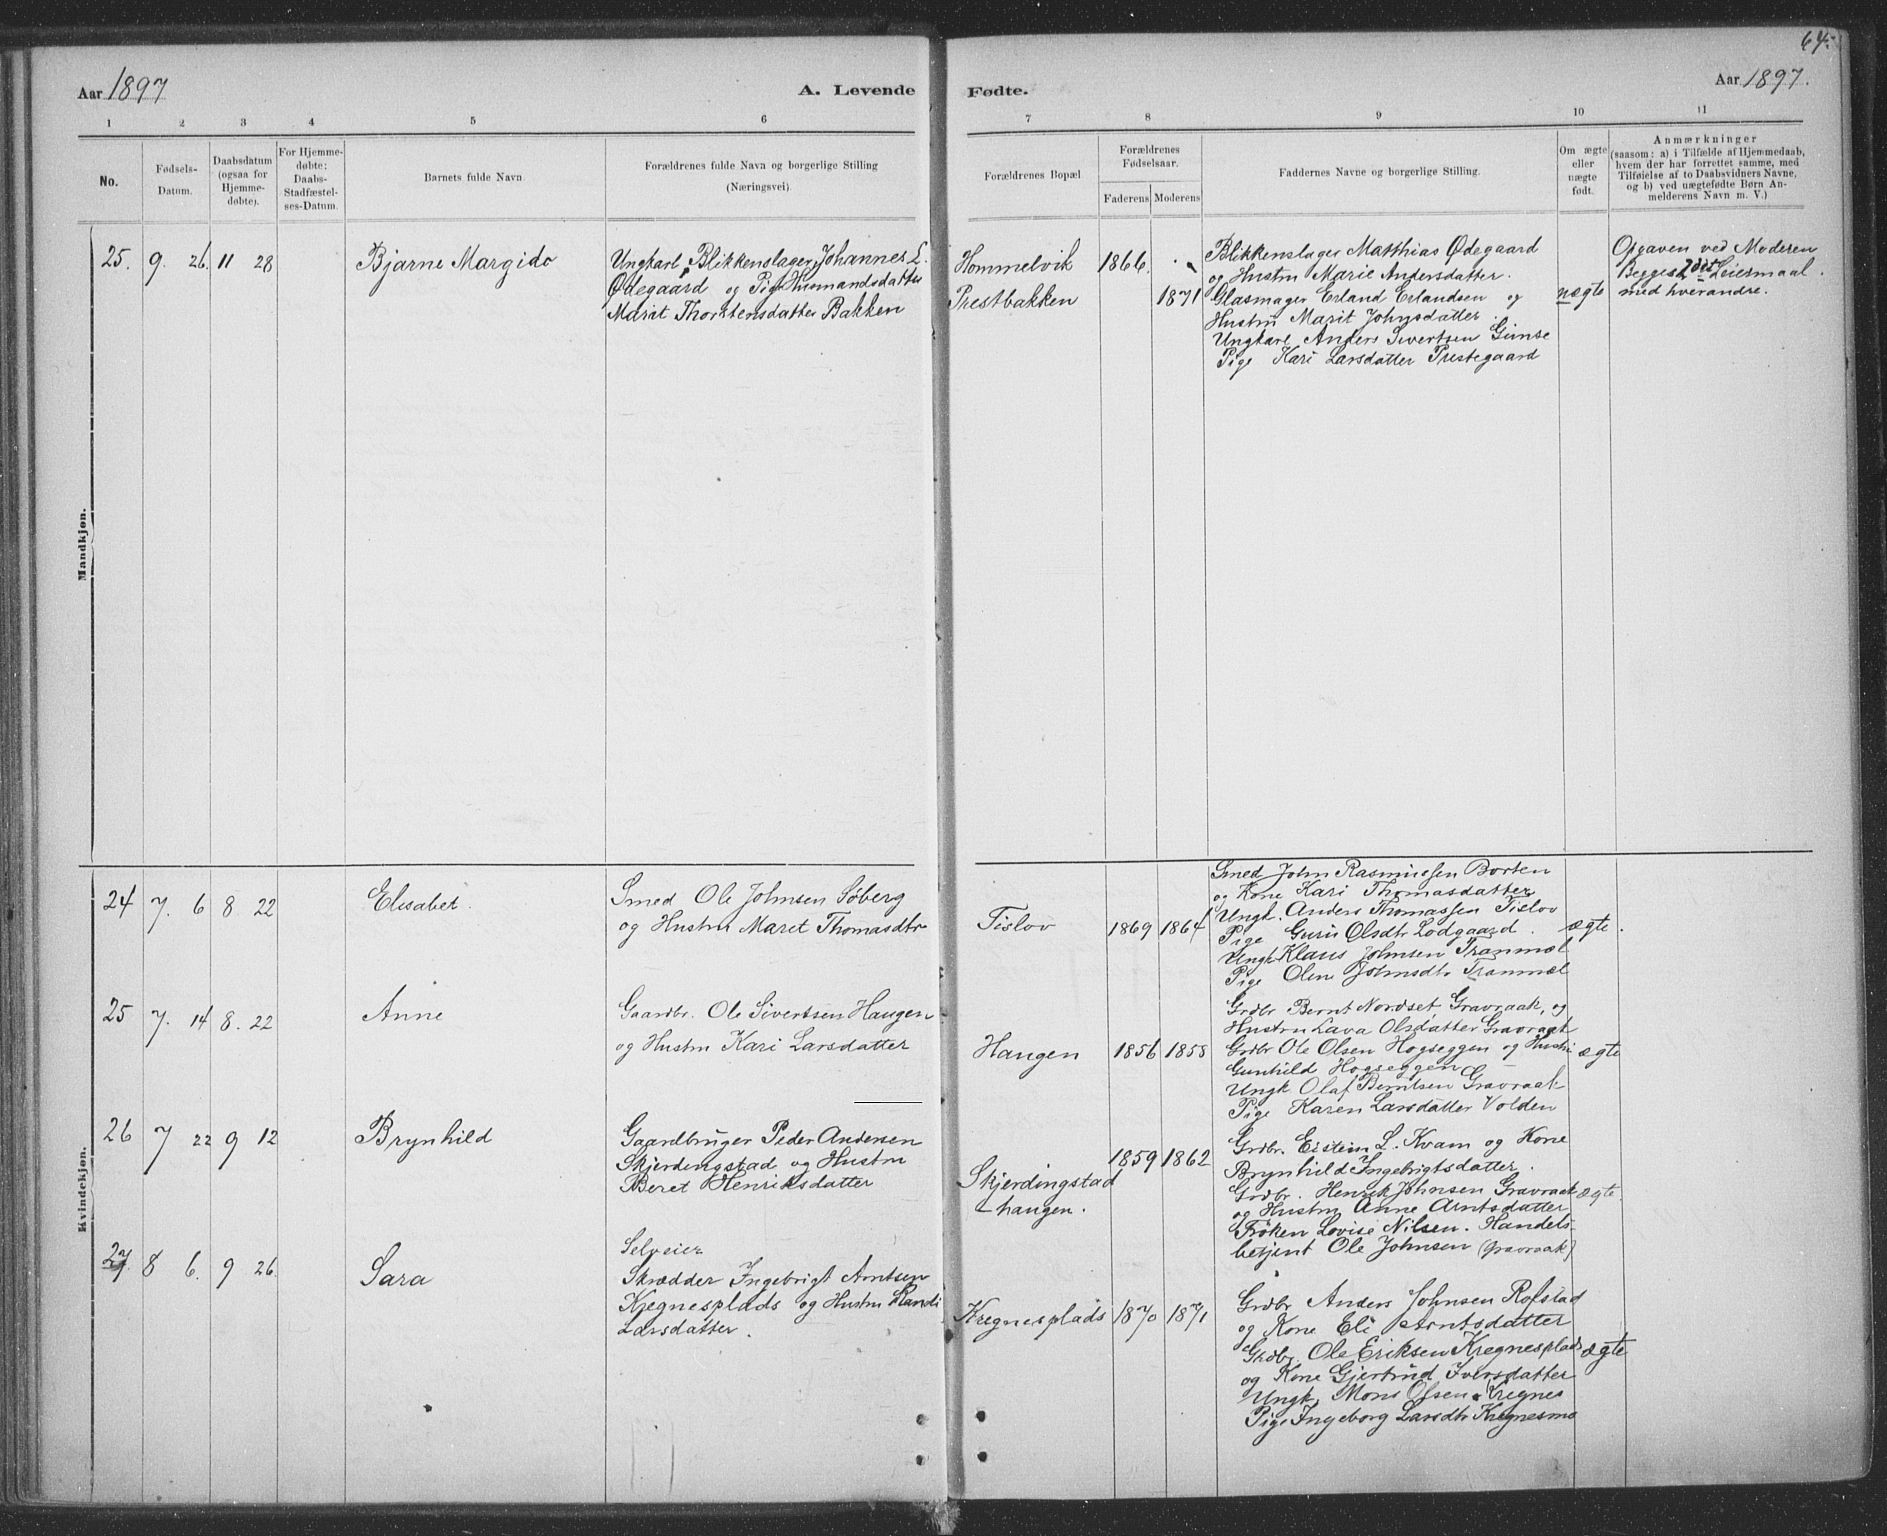 64.
Aar 1897
A. Levende
Fødte.
Aar 1897.
1 2 3 4 5 6 7 8 9 10 11
No.
Fødsels-
Datum.
Daabsdatum
(ogsaa for
Hjemme-
døbte).
For Hjemme-
døbte:
Daabs-
Stadfæstel-
ses-Datum.
Barnets fulde Navn
Forældrenes fulde Navn og borgerlige Stilling
(Næringsvei).
Forældrenes Bopæl
Forældrenes
Fødselsaar.
Faderens Moderens
Faddernes Navne og borgerlige Stilling.
Om ægte
eller
uægte
født.
Anmærkninger
(saasom: a) i Tilfælde af Hjemmedaab,
hvem der har forrettet samme, med
Tilføielse af to Daabsvidners Navne,
og b) ved uægtefødte Børn An-
melderens Navn m. V.)
Mandkjøn.
25. 9. 26. 11 28
Bjarne Margido
Ungkarl, Blikkenslager Johannes L.
Ødegaard og Pige Husmandsdatter
Marit Thorstensdatter Bakken
Hommelvik 1866.
Prestbakken 1871
Blikkenslager Matthias Ødegaard
og Hustru Marie Andersdatter.
Glasmager Erland Erlandsen og
Hustru Marit Johnsdatter.
Ungkarl Anders Sivertsen Gimse
Pige Kari Larsdatter Prestegaard
uægte
Opgaven ved Moderen
Begges 2det Leiermaal
med hverandre.
Kvindekjøn.
24 7. 6 8 22
Elisabet.
Smed Ole Johnsen Søberg
og Hustru Maret Thomasdtr
Tislov 1869 1864
Smed John Rasmussen Borten
og Kone Kari Thomasdatter
Ungk. Anders Thomassen Tislov
Pige Guru Olsdtr Lodgaard.
Ungk Klaus Johnsen Tranmæl
Pige Olin Johnsdtr Tranmæl
ægte.
25 7. 14 8. 22
Anne
Gaardbr. Ole Sivertsen Haugen
og Hustru Kari Larsdatter
Haugen 1856 1858
Grdbr Bernt Nordset, Gravraak, og
Hustru Lava Olsdatter Gravraak
Grdbr Ole Olsen Hogseggen og Hustru
Gunhild Hogseggen
Ungk Olaf Berntsen Gravraak
Pige Karen Larsdatter Volden
ægte
26 7 22 9 12
Brynhild
Gaardbruger Peder Andersen
Skjerdingstad og Hustru
Beret Henriksdatter
Skjerdingstad
haugen. 1859 1862
Grdbr. Eistein L. Kvam og Kone
Brynhild Ingebrigtsdatter.
Grdbr. Henrik Johnsen Gravraak
og Hustru Anne Arntsdatter
Frøken Lovise Nilsen. Handels-
betjent Ole Johnsen (Gravraak)
ægte.
27 8 6. 9 26
Sara
Selveier
Skrædder Ingebrigt Arntsen
Kregnesplads og Hustru Randi
Larsdatter.
Kregnesplads 1870 1871
Grdbr Anders Johnsen Rofstad
og Kone Eli Arntsdatter
Grdbr. Ole Eriksen Kregnesplads
og Kone Gjertrud Iversdatter
Ungk Mons Olsen Kregnes
Pige Ingeborg Larsdtr Kregnesmo
ægte